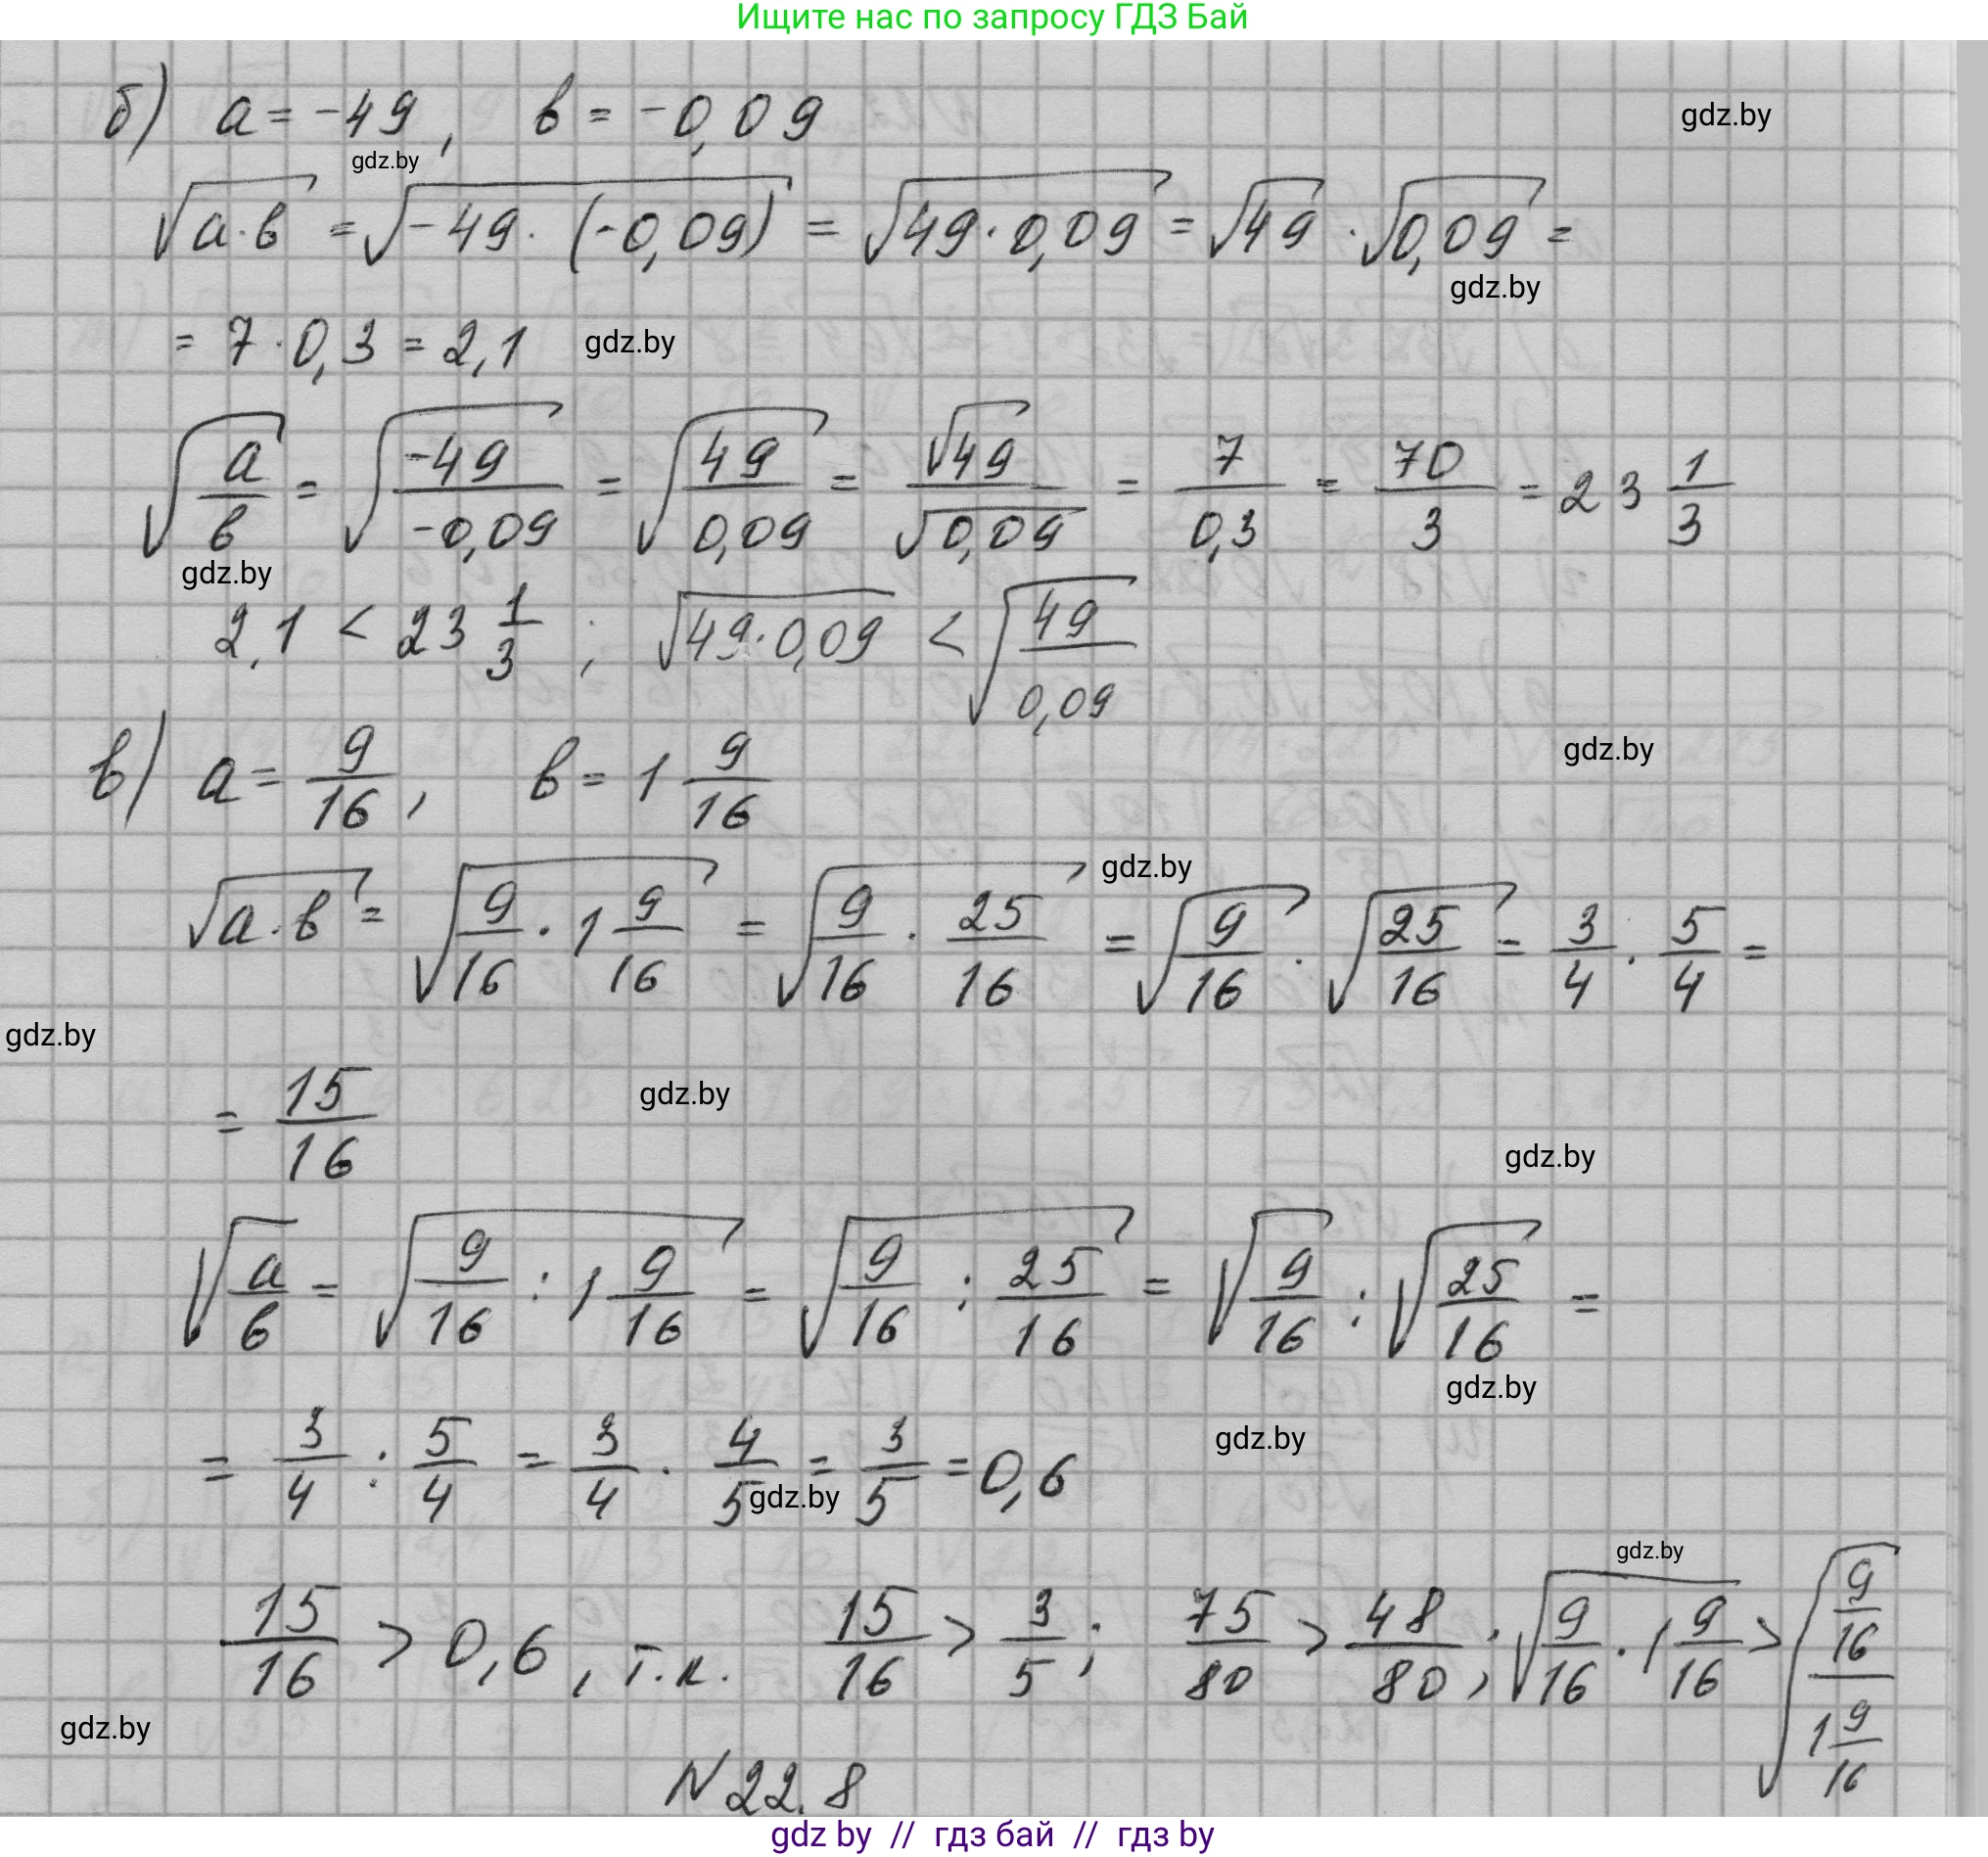 Ищите нас по запросу ГДЗ Бай
б) a = -49, b = -0,09
gdz.by
gdz.by
√(a·b) = √(-49·(-0,09)) = √(49·0,09) = √49 · √0,09 =
gdz.by
= 7·0,3 = 2,1
gdz.by
√(a/b) = √(-49/-0,09) = √(49/0,09) = √49/√0,09 = 7/0,3 = 70/3 = 23 1/3
gdz.by
2,1 < 23 1/3 ; √(49·0,09) < √(49/0,09)
в) a = 9/16, b = 1 9/16
gdz.by
gdz.by
√(a·b) = √(9/16 · 1 9/16) = √(9/16 · 25/16) = √(9/16) · √(25/16) = 3/4 · 5/4 =
gdz.by
= 15/16
gdz.by
gdz.by
√(a/b) = √(9/16 : 1 9/16) = √(9/16 : 25/16) = √(9/16) : √(25/16) =
gdz.by
gdz.by
= 3/4 : 5/4 = 3/4 · 4/5 = 3/5 = 0,6
gdz.by
gdz.by
15/16 > 0,6, т.к. 15/16 > 3/5; 75/80 > 48/80; √(9/16 · 1 9/16) > √((9/16)/(1 9/16))
gdz.by
N 22.8
gdz by // гдз бай // гдз by